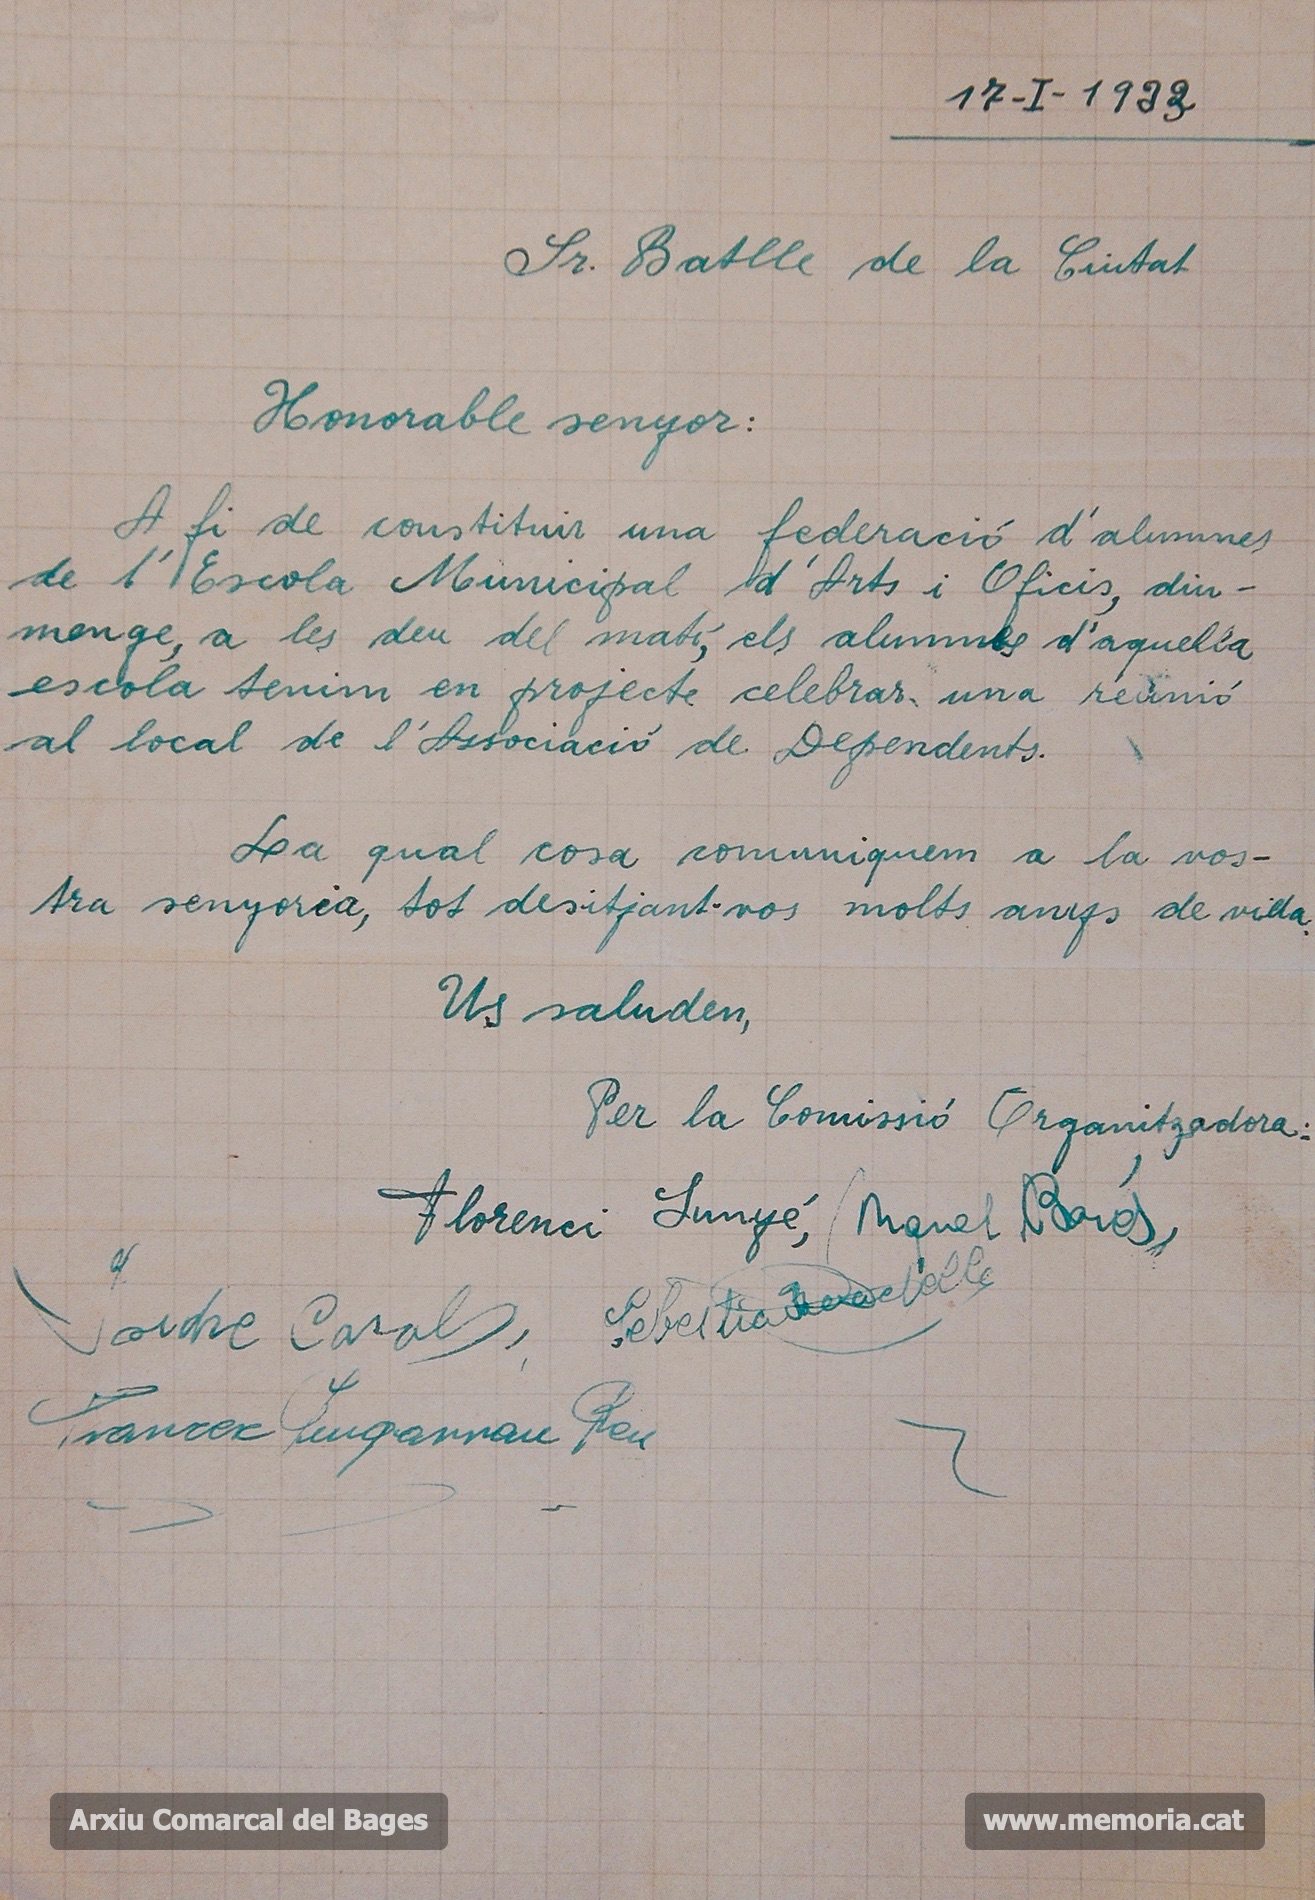 17-I-1933
Sr. Batlle de la Ciutat
Honorable senyor:
A fi de constituir una federació d'alumnes
de l'Escola Municipal d'Arts i Oficis, diu-
menge, a les deu del matí, els alumnes d'aquella
escola tenim en projecte celebrar una reunió
al local de l'Associació de Dependents.
La qual cosa comuniquem a la vos-
tra senyoria, tot desitjant-vos molts anys de vida.
Us saluden,
Per la Comissió Organitzadora:
Florenci Sunyé, Miquel
Carol
Francesc Puigarnau Reu
Arxiu Comarcal del Bages
www.memoria.cat